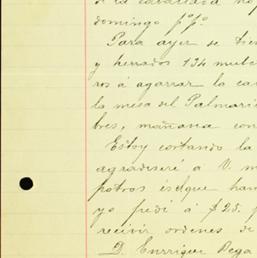 de la caballada
domingo ppo.
Para ayer se
y herrados 134
ros á agarrar la
la mesa del Palmari
bres, mañana con
Estoy cortando la
agradeceré á V. m
potros
yo pedí á $25.
recivir ordenes de
D. Enrrique Vega